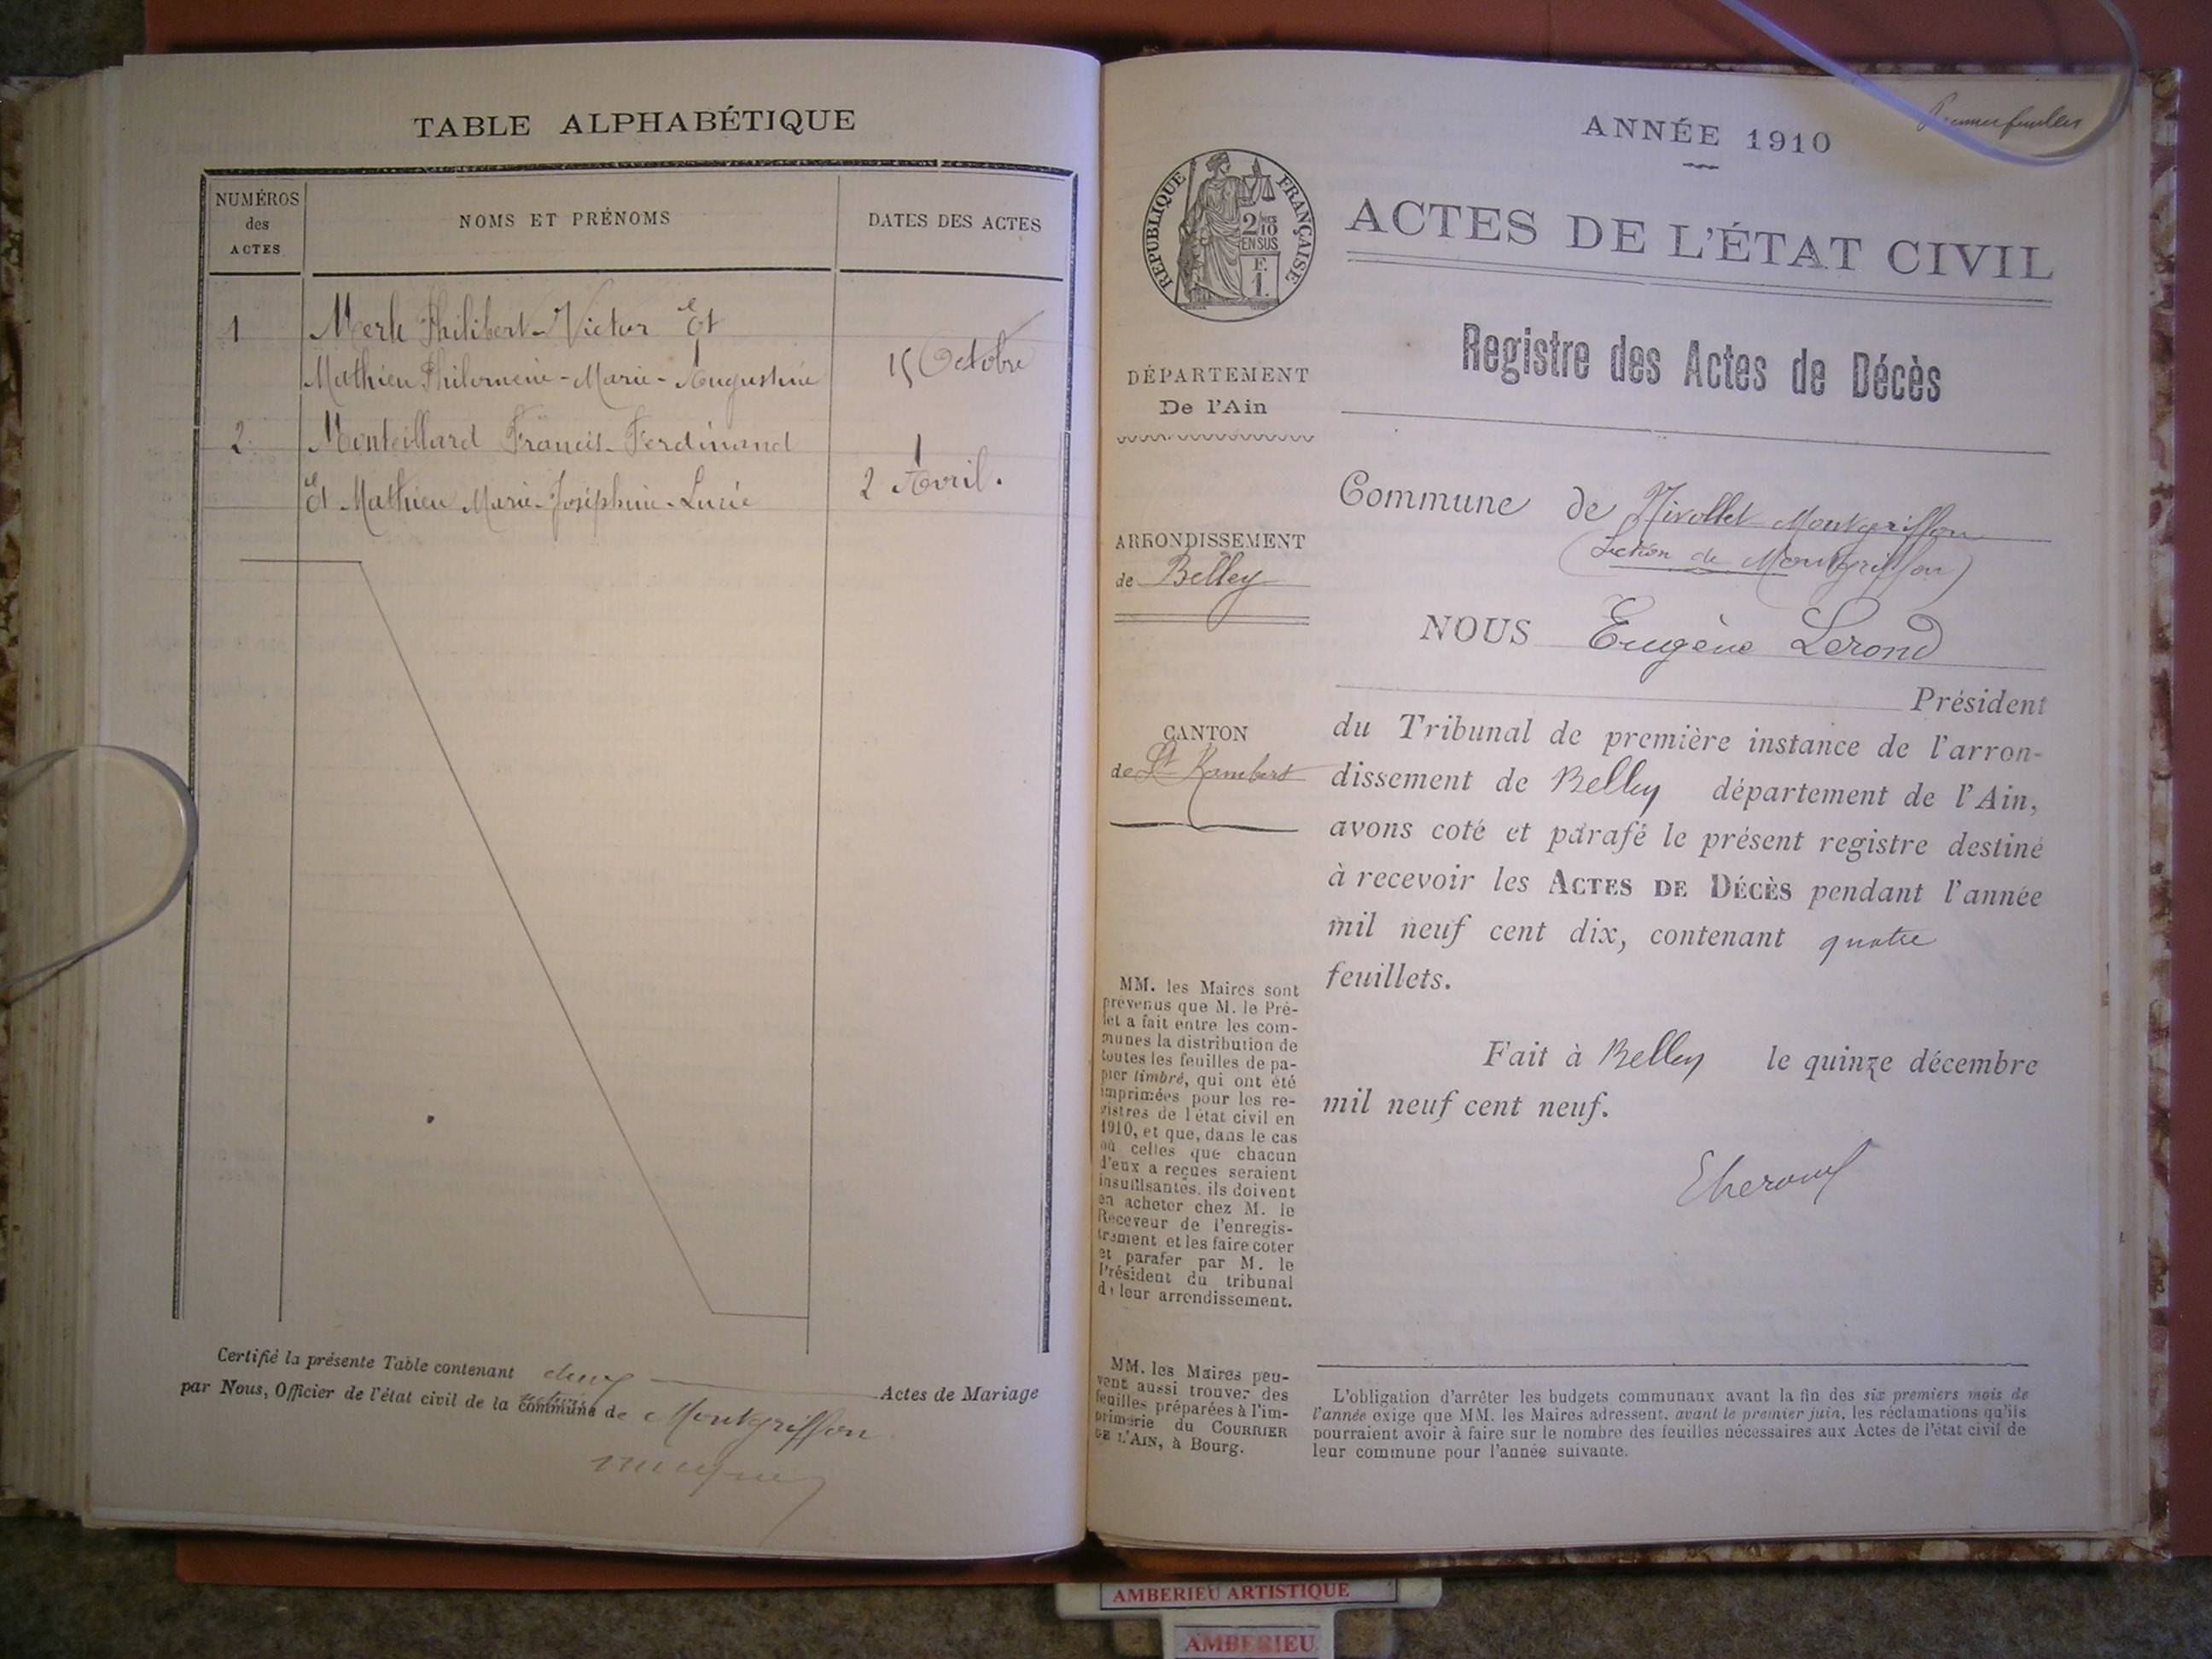 TABLE ALPHABÉTIQUE
NUMÉROS
des
ACTES
NOMS ET PRÉNOMS
DATES DES ACTES
1 Merle Philibert-Victor Et
Mathieu Philomène-Marie-Augustine 15 Octobre
2 Monteillard Francis-Ferdinand
Et Mathieu Marie-Joséphine-Lucie 2 Avril.
Certifié la présente Table contenant deux Actes de Mariage
par Nous, Officier de l'état civil de la commune section de Montgriffon
ANNÉE 1910
Premier feuillet
RÉPUBLIQUE FRANÇAISE
2/10
EN SUS
F.
1.
ACTES DE L'ÉTAT CIVIL
Registre des Actes de Décès
DÉPARTEMENT
De l'Ain
ARRONDISSEMENT
de Belley
CANTON
de St Rambert
MM. les Maires sont
prévenus que M. le Pré-
fet a fait entre les com-
munes la distribution de
toutes les feuilles de pa-
pier timbré, qui ont été
imprimées pour les re-
gistres de l'état civil en
1910, et que, dans le cas
où celles que chacun
d'eux a reçues seraient
insuffisantes, ils doivent
en acheter chez M. le
Receveur de l'enregis-
trement et les faire coter
et parafer par M. le
Président du tribunal
de leur arrondissement.
MM. les Maires peu-
vent aussi trouver des
feuilles préparées à l'im-
primerie du COURRIER
DE L'AIN, à Bourg.
Commune de Nivollet Montgriffon
(Section de Montgriffon)
NOUS Eugène Lerond
Président
du Tribunal de première instance de l'arron-
dissement de Belley département de l'Ain,
avons coté et parafé le présent registre destiné
à recevoir les ACTES DE DÉCÈS pendant l'année
mil neuf cent dix, contenant quatre
feuillets.
Fait à Belley le quinze décembre
mil neuf cent neuf.
ELerond
L'obligation d'arrêter les budgets communaux avant la fin des six premiers mois de
l'année exige que MM. les Maires adressent, avant le premier juin, les réclamations qu'ils
pourraient avoir à faire sur le nombre des feuilles nécessaires aux Actes de l'état civil de
leur commune pour l'année suivante.
AMBERIEU ARTISTIQUE
AMBERIEU